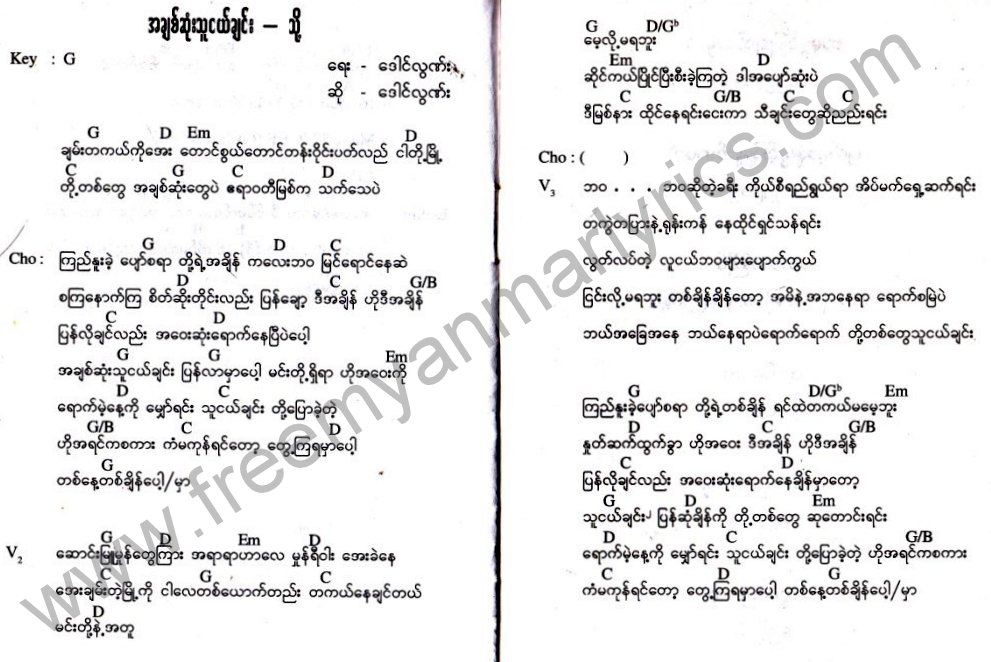 အချစ်ဆုံးသူငယ်ချင်း – သို့
Key : G
ရေး - ဒေါင်းလွဏ်း
ဆို - ဒေါင်းလွဏ်း
G D Em D
ချမ်းတကယ်ကိုအေး တောင်စွယ်တောင်တန်းဝိုင်းပတ်လည် ငါတို့မြို့
C G C D
တို့တစ်တွေ အချစ်ဆုံးတွေပဲ ဧရာဝတီမြစ်က သက်သေပဲ
G D C
Cho : ကြည်နူးခဲ့ ပျော်စရာ တို့ရဲ့အချိန် ကလေးဘဝ မြင်ရောင်နေဆဲ
D C G/B
စကြနောက်ကြ စိတ်ဆိုးတိုင်းလည်း ပြန်ချော့ ဒီအချိန် ဟိုဒီအချိန်
C D
ပြန်လိုချင်လည်း အဝေးဆုံးရောက်နေပြီပဲပေါ့
G G Em
အချစ်ဆုံးသူငယ်ချင်း ပြန်လာမှာပေါ့ မင်းတို့ရှိရာ ဟိုအဝေးကို
D C
ရောက်မဲ့နေ့ကို မျှော်ရင်း သူငယ်ချင်း တို့ပြောခဲ့တဲ့
G/B C D
ဟိုအရင်ကစကား ကံမကုန်ရင်တော့ တွေ့ကြရမှာပေါ့
G
တစ်နေ့တစ်ချိန်ပေါ့/မှာ
G D Em D
V2 ဆောင်းမြူမှုန်တွေကြား အရာရာဟာလေ မှုန်ရီဝါး အေးခဲနေ
C G C
အေးချမ်းတဲ့မြို့ကို ငါလေတစ်ယောက်တည်း တကယ်နေချင်တယ်
D
မင်းတို့နဲ့အတူ
G D/Gb
မေ့လို့မရဘူး
Em D
ဆိုင်ကယ်ပြိုင်ပြီးစီးခဲ့ကြတဲ့ ဒါအပျော်ဆုံးပဲ
C G/B C C
ဒီမြစ်နား ထိုင်နေရင်းငေးကာ သီချင်းတွေဆိုညည်းရင်း
Cho : ( )
V3 ဘဝ . . . ဘဝဆိုတဲ့ခရီး ကိုယ်စီရည်ရွယ်ရာ အိပ်မက်ရှေ့ဆက်ရင်း
တကွဲတပြားနဲ့ရုန်းကန် နေထိုင်ရှင်သန်ရင်း
လွတ်လပ်တဲ့ လူငယ်ဘဝများပျောက်ကွယ်
ငြင်းလို့မရဘူး တစ်ချိန်ချိန်တော့ အမိနဲ့အဘနေရာ ရောက်စမြဲပဲ
ဘယ်အခြေအနေ ဘယ်နေရာပဲရောက်ရောက် တို့တစ်တွေသူငယ်ချင်း
G D/Gb Em
ကြည်နူးခဲ့ပျော်စရာ တို့ရဲ့တစ်ချိန် ရင်ထဲတကယ်မမေ့ဘူး
D C G/B
နှုတ်ဆက်ထွက်ခွာ ဟိုအဝေး ဒီအချိန် ဟိုဒီအချိန်
C D
ပြန်လိုချင်လည်း အဝေးဆုံးရောက်နေချိန်မှာတော့
G D Em
သူငယ်ချင်း၂ ပြန်ဆုံချိန်ကို တို့တစ်တွေ ဆုတောင်းရင်း
D C G/B
ရောက်မဲ့နေ့ကို မျှော်ရင်း သူငယ်ချင်း တို့ပြောခဲ့တဲ့ ဟိုအရင်ကစကား
C D G
ကံမကုန်ရင်တော့ တွေ့ကြရမှာပေါ့ တစ်နေ့တစ်ချိန်ပေါ့/မှာ
www.freemyanmarlyrics.com